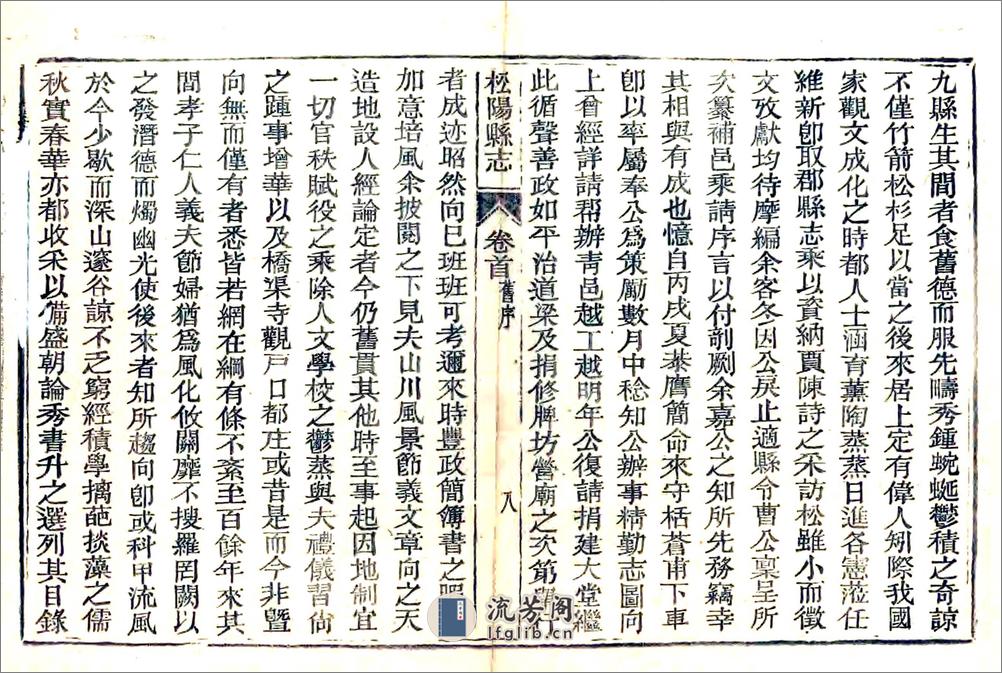 九縣生其間者食舊德而服先疇秀鍾蜿蜒鬱積之奇諒
不僅竹箭松杉足以當之後來居上定有偉人矧際我國
家觀文成化之時都人士涵育薰陶蒸蒸日進各憲蒞任
維新卽取郡縣志乘以資納賈陳詩之采訪松雖小而徵
文攷獻均待摩編余客冬因公戾止適縣令曹公稟呈所
次纂補邑乘請序言以付剞劂余嘉公之知所先務竊幸
其相與有成也憶自丙戌夏忝膺簡命來守栝蒼甫下車
卽以率屬奉公爲策勵數月中稔知公辦事精勤志圖向
上曾經詳請帮辦靑邑越工越明年公復請捐建大堂繼
此循聲善政如平治道梁及捐修牌坊營廟之次第
松陽縣志 卷首 舊序 八
者成迹昭然向已班班可考邇來時豐政簡簿書之暇
加意培風余披閱之下見夫山川風景節義文章向之天
造地設人經論定者今仍舊貫其他時至事起因地制宜
一切官秩賦役之乘除人文學校之鬱蒸與夫禮儀習尙
之踵事增華以及橋渠寺觀戸口都庄或昔是而今非曁
向無而僅有者悉皆若網在綱有條不紊至百餘年來其
間孝子仁人義夫節婦猶爲風化攸關靡不搜羅罔闕以
之發潛德而燭幽光使後來者知所趨向卽或科甲流風
於今少歇而深山邃谷諒不乏窮經積學摛葩掞藻之儒
秋實春華亦都收采以備盛朝論秀書升之選列其目錄
流芳阁
lfglib.cn